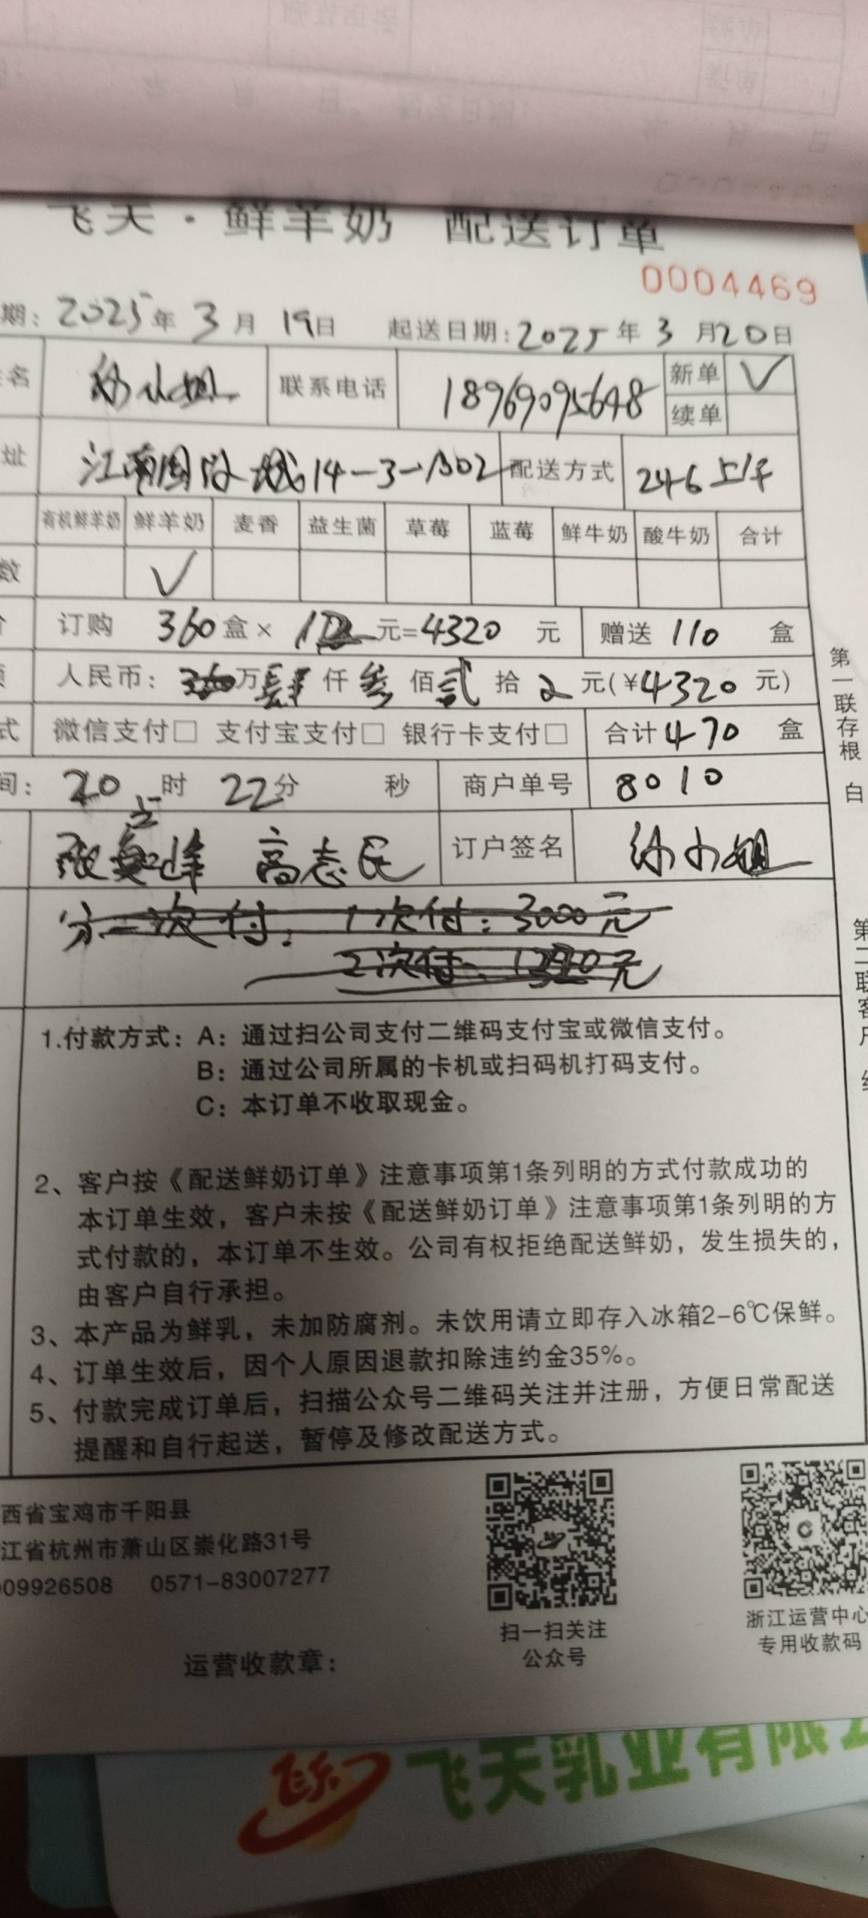 飞天·鲜羊奶 配送订单
0004469
期: 2025年 3月 19日 起送日期: 2025年 3月20日
名 小姐 联系电话 18969095648 新单 √
续单
址 江南国际城14-3-1302 配送方式 246上午
有机鲜羊奶 鲜羊奶 麦香 益生菌 草莓 蓝莓 鲜牛奶 酸牛奶 合计
数 √
订购 360盒× 12元=4320 元 赠送 110 盒
人民币: 万肆仟叁佰贰拾 元(¥4320元)
式 微信支付□ 支付宝支付□ 银行卡支付□ 合计470 盒
间: 20时 22分 秒 商户单号 8010
高志民 订户签名 小姐
分二次付: 1次付: 3000元
2次付: 1320元
1.付款方式: A: 通过扫公司支付二维码支付宝或微信支付。
B: 通过公司所属的卡机或扫码机打码支付。
C: 本订单不收取现金。
2、客户按《配送鲜奶订单》注意事项第1条列明的方式付款成功的
本订单生效，客户未按《配送鲜奶订单》注意事项第1条列明的方
式付款的，本订单不生效。公司有权拒绝配送鲜奶，发生损失的，
由客户自行承担。
3、本产品为鲜乳，未加防腐剂。未饮用请立即存入冰箱2-6℃保鲜。
4、订单生效后，因个人原因退款扣除违约金35%。
5、付款完成订单后，扫描公众号二维码关注并注册，方便日常配送
提醒和自行起送，暂停及修改配送方式。
第一联存根 白
第二联客户
西省宝鸡市千阳县
江省杭州市萧山区崇化路31号
09926508 0571-83007277
扫一扫关注
公众号
浙江运营中心
专用收款码
运营收款章:
飞天乳业有限